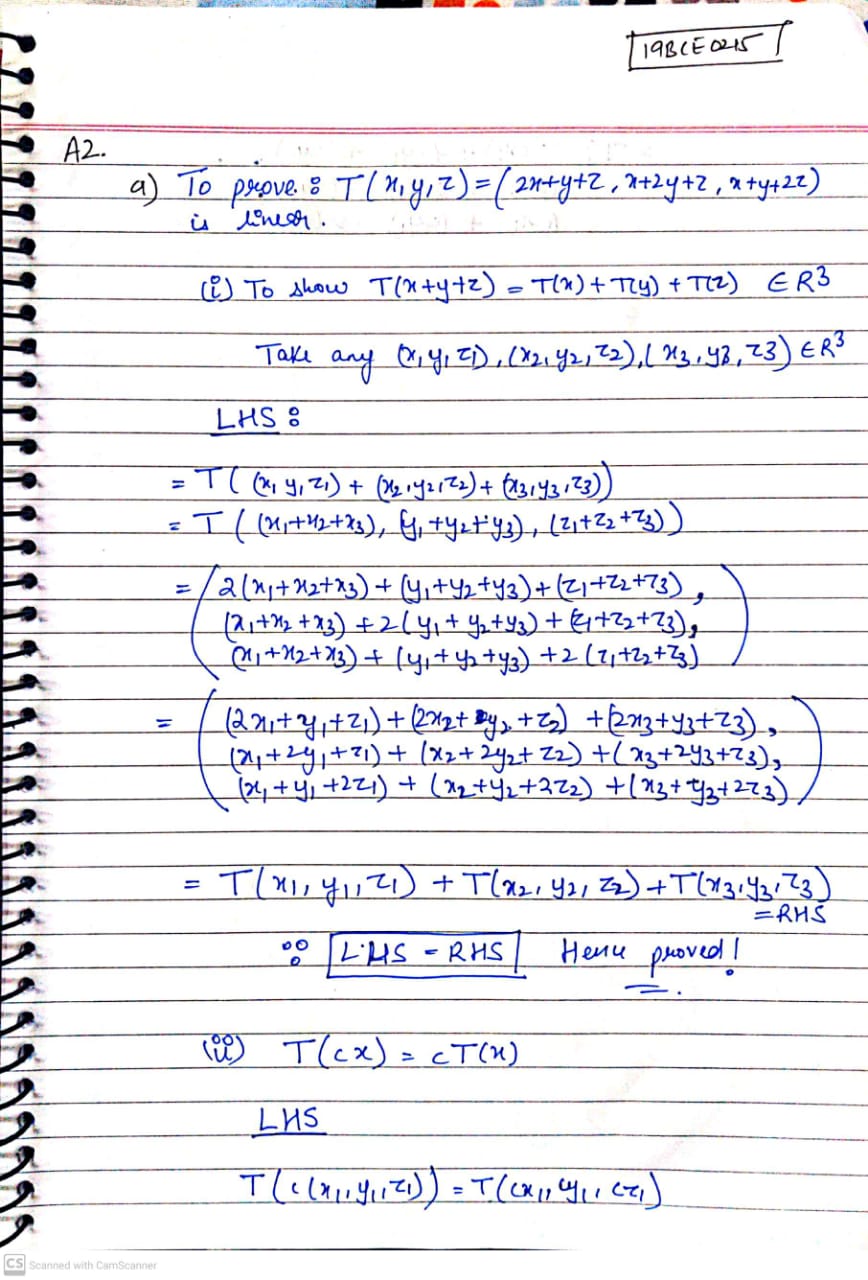 19BCE0215
A2.
a) To prove : T(x,y,z)=(2x+y+z, x+2y+z, x+y+2z)
is linear.
(i) To show T(x+y+z) = T(x) + T(y) + T(z) ∈ R3
Take any (x1 y1 z1), (x2, y2, z2), (x3, y3, z3) ∈ R3
LHS :
= T( (x1 y1, z1) + (x2, y2, z2) + (x3, y3, z3))
= T( (x1+x2+x3), (y1+y2+y3), (z1+z2+z3))
= (2(x1+x2+x3) + (y1+y2+y3) + (z1+z2+z3),
(x1+x2+x3) + 2(y1+y2+y3) + (z1+z2+z3),
(x1+x2+x3) + (y1+y2+y3) + 2(z1+z2+z3))
= ((2x1+y1+z1) + (2x2+y2+z2) + (2x3+y3+z3),
(x1+2y1+z1) + (x2+2y2+z2) + (x3+2y3+z3),
(x1+y1+2z1) + (x2+y2+2z2) + (x3+y3+2z3))
= T(x1, y1, z1) + T(x2, y2, z2) + T(x3, y3, z3)
= RHS
∴ LHS = RHS Hence proved!
(ii) T(cx) = cT(x)
LHS
T(c(x1, y1, z1)) = T(cx1, cy1, cz1)
CS Scanned with CamScanner